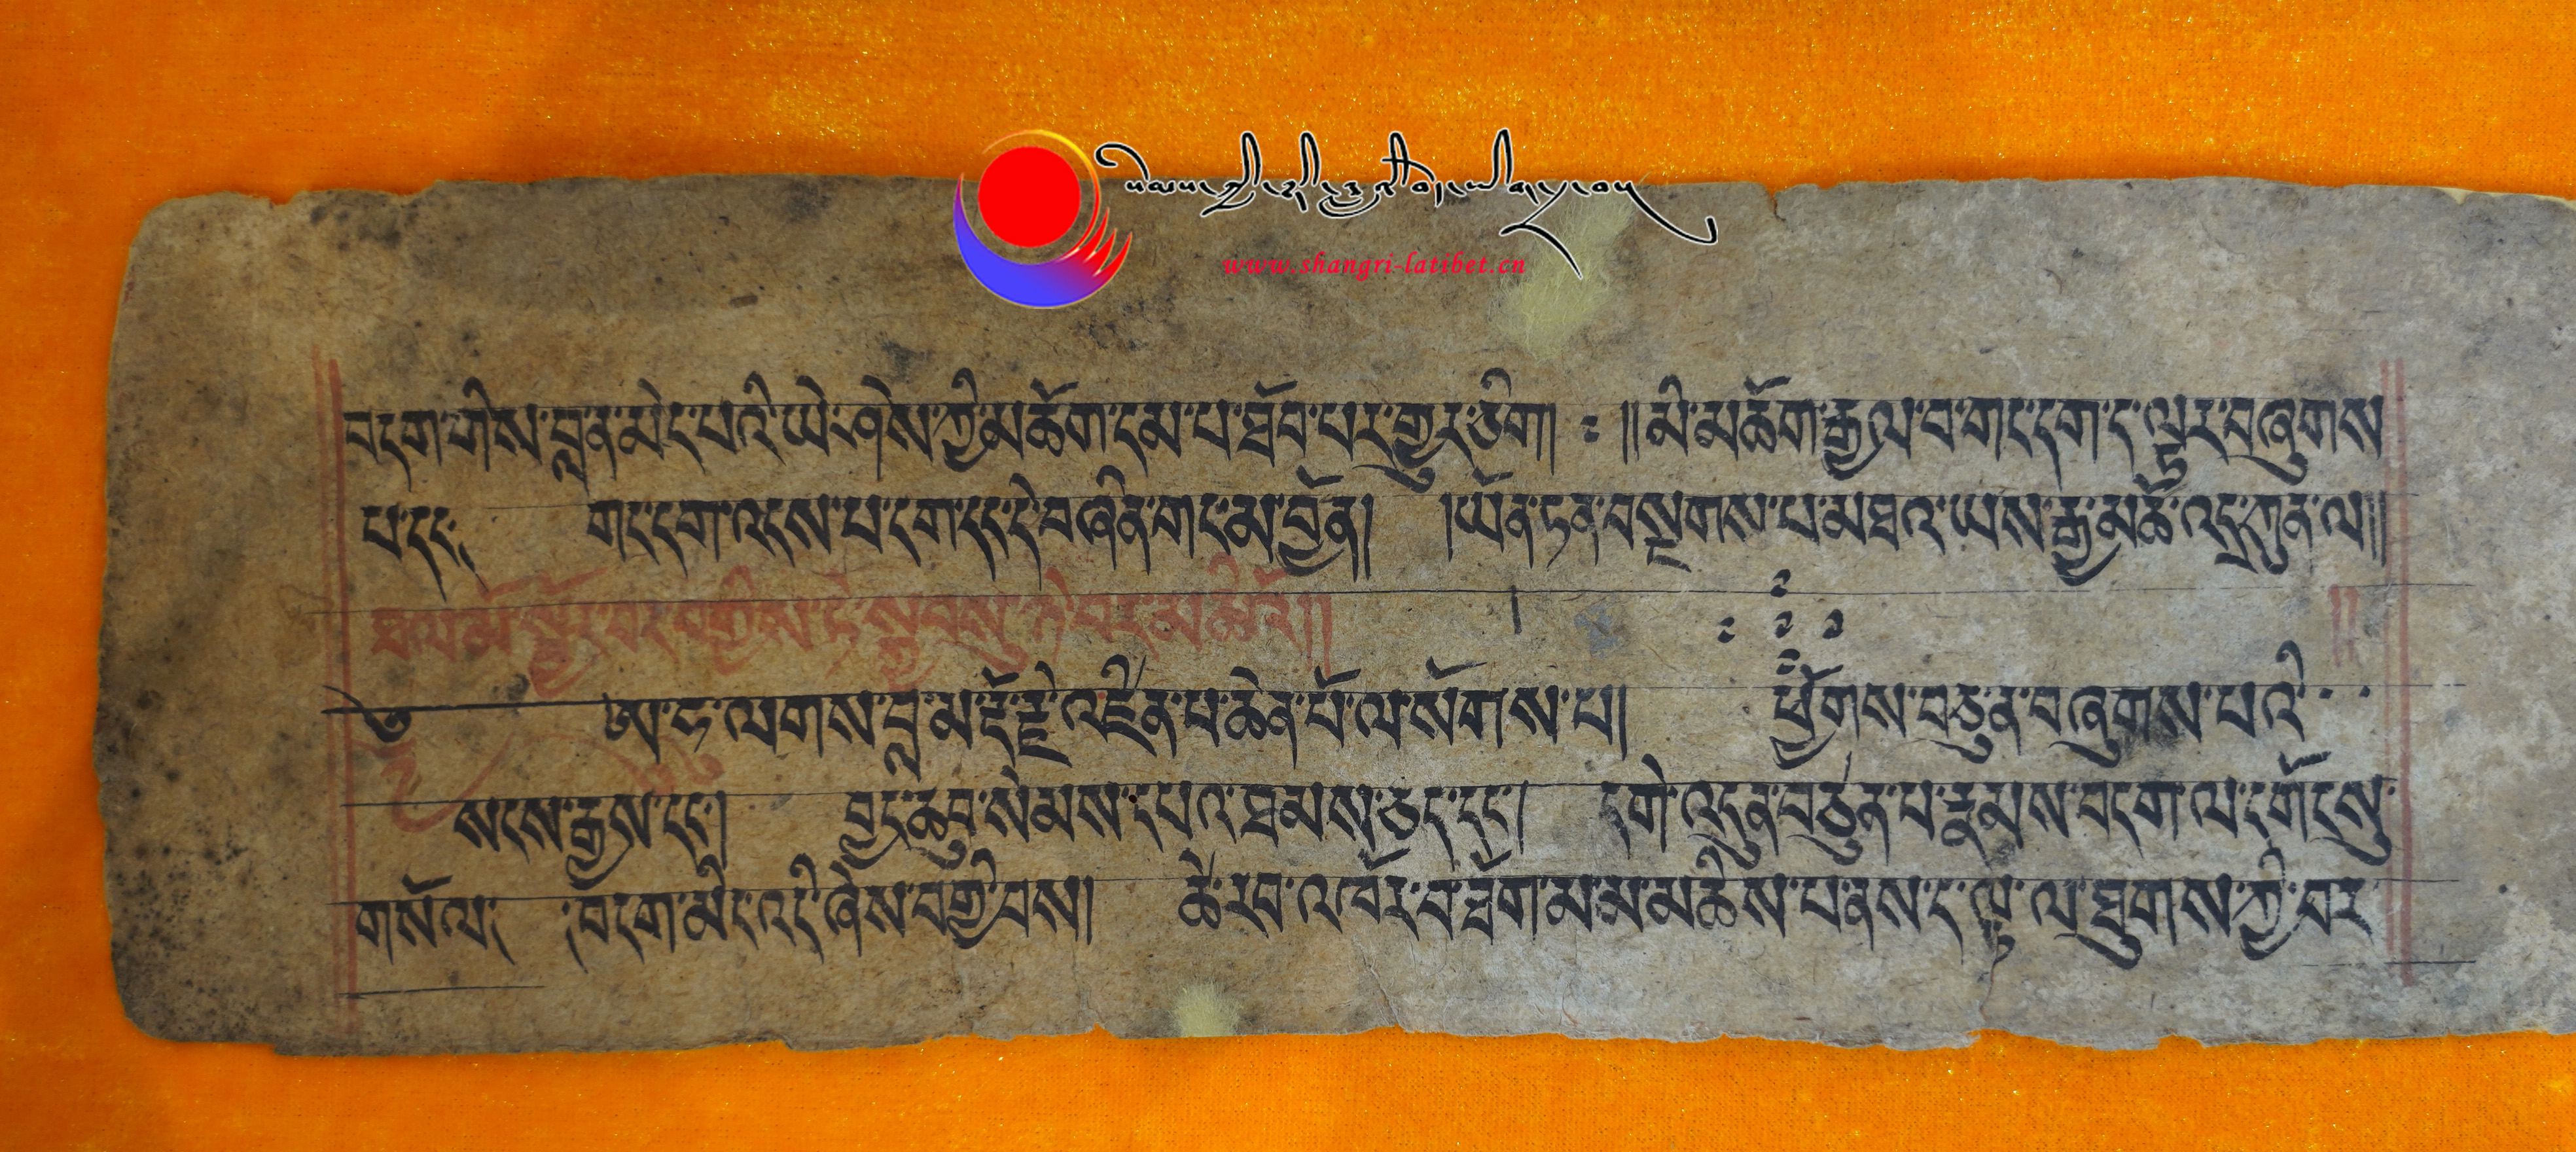 www.shangri-latibet.cn
བདག་གིས་བླན་མེད་པའི་ཡེ་ཤེས་ཀྱི་མཆོག་དམ་པ་ཐོབ་པར་གྱུར་ཅིག། ༔ །།མི་མཆོག་རྒྱལ་བ་གང་དག་ད་ལྟར་བཞུགས
པ་དང་ གང་དག་འདས་པ་དག་དང་དེ་བཞིན་གང་མ་བྱོན། །ཡོན་ཏན་བསྔགས་པ་མཐའ་ཡས་རྒྱ་མཚོ་འདྲ་ཀུན་ལ།།
ཐལ་མོ་སྦྱར་བར་བགྱིས་ཏེ་སྐྱབས་སུ་ཉེ་བར་མཆིའོ།།
༄ ༅ །ཨ་ཙ་ལགས་བླ་མ་རྡོ་རྗེ་འཛིན་པ་ཆེན་པོ་ལ་སོགས་པ། ཕྱོགས་བཅུ་ན་བཞུགས་པའི་
སངས་རྒྱས་དང་། བྱང་ཆུབ་སེམས་དཔའ་ཐམས་ཅད་དང་། དགེ་འདུན་བཙུན་པ་རྣམས་བདག་ལ་དགོངས་སུ་
གསོལ། བདག་མིང་འདི་ཞེས་བགྱི་བས། ཚེ་རབས་འཁོར་བ་ཐོག་མ་མ་མཆིས་པ་ནས་ད་ལྟ་ལ་ཐུག་གི་བར